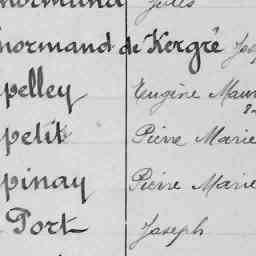 normand Jules
normand de Kergré
pelley Eugène
petit Pierre Marie
pinay Pierre Marie
Port Joseph